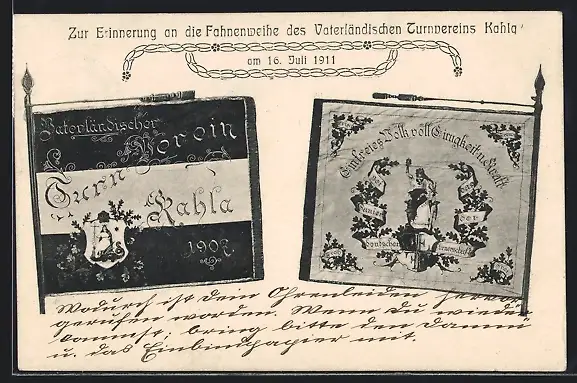 Zur Erinnerung an die Fahnenweihe des Vaterländischen Turnvereins Kahla
am 16. Juli 1911
Vaterländischer
Verein
Turn
Kahla
1907
Ein freies Volk voll Einigkeit u. Kraft
das
unser
der
deutschen
Wodurch ist dein Ohrenleiden hervor
gerufen worden. Wenn du wieder
kommst, bring bitte den
u. das Einbindpapier mit.